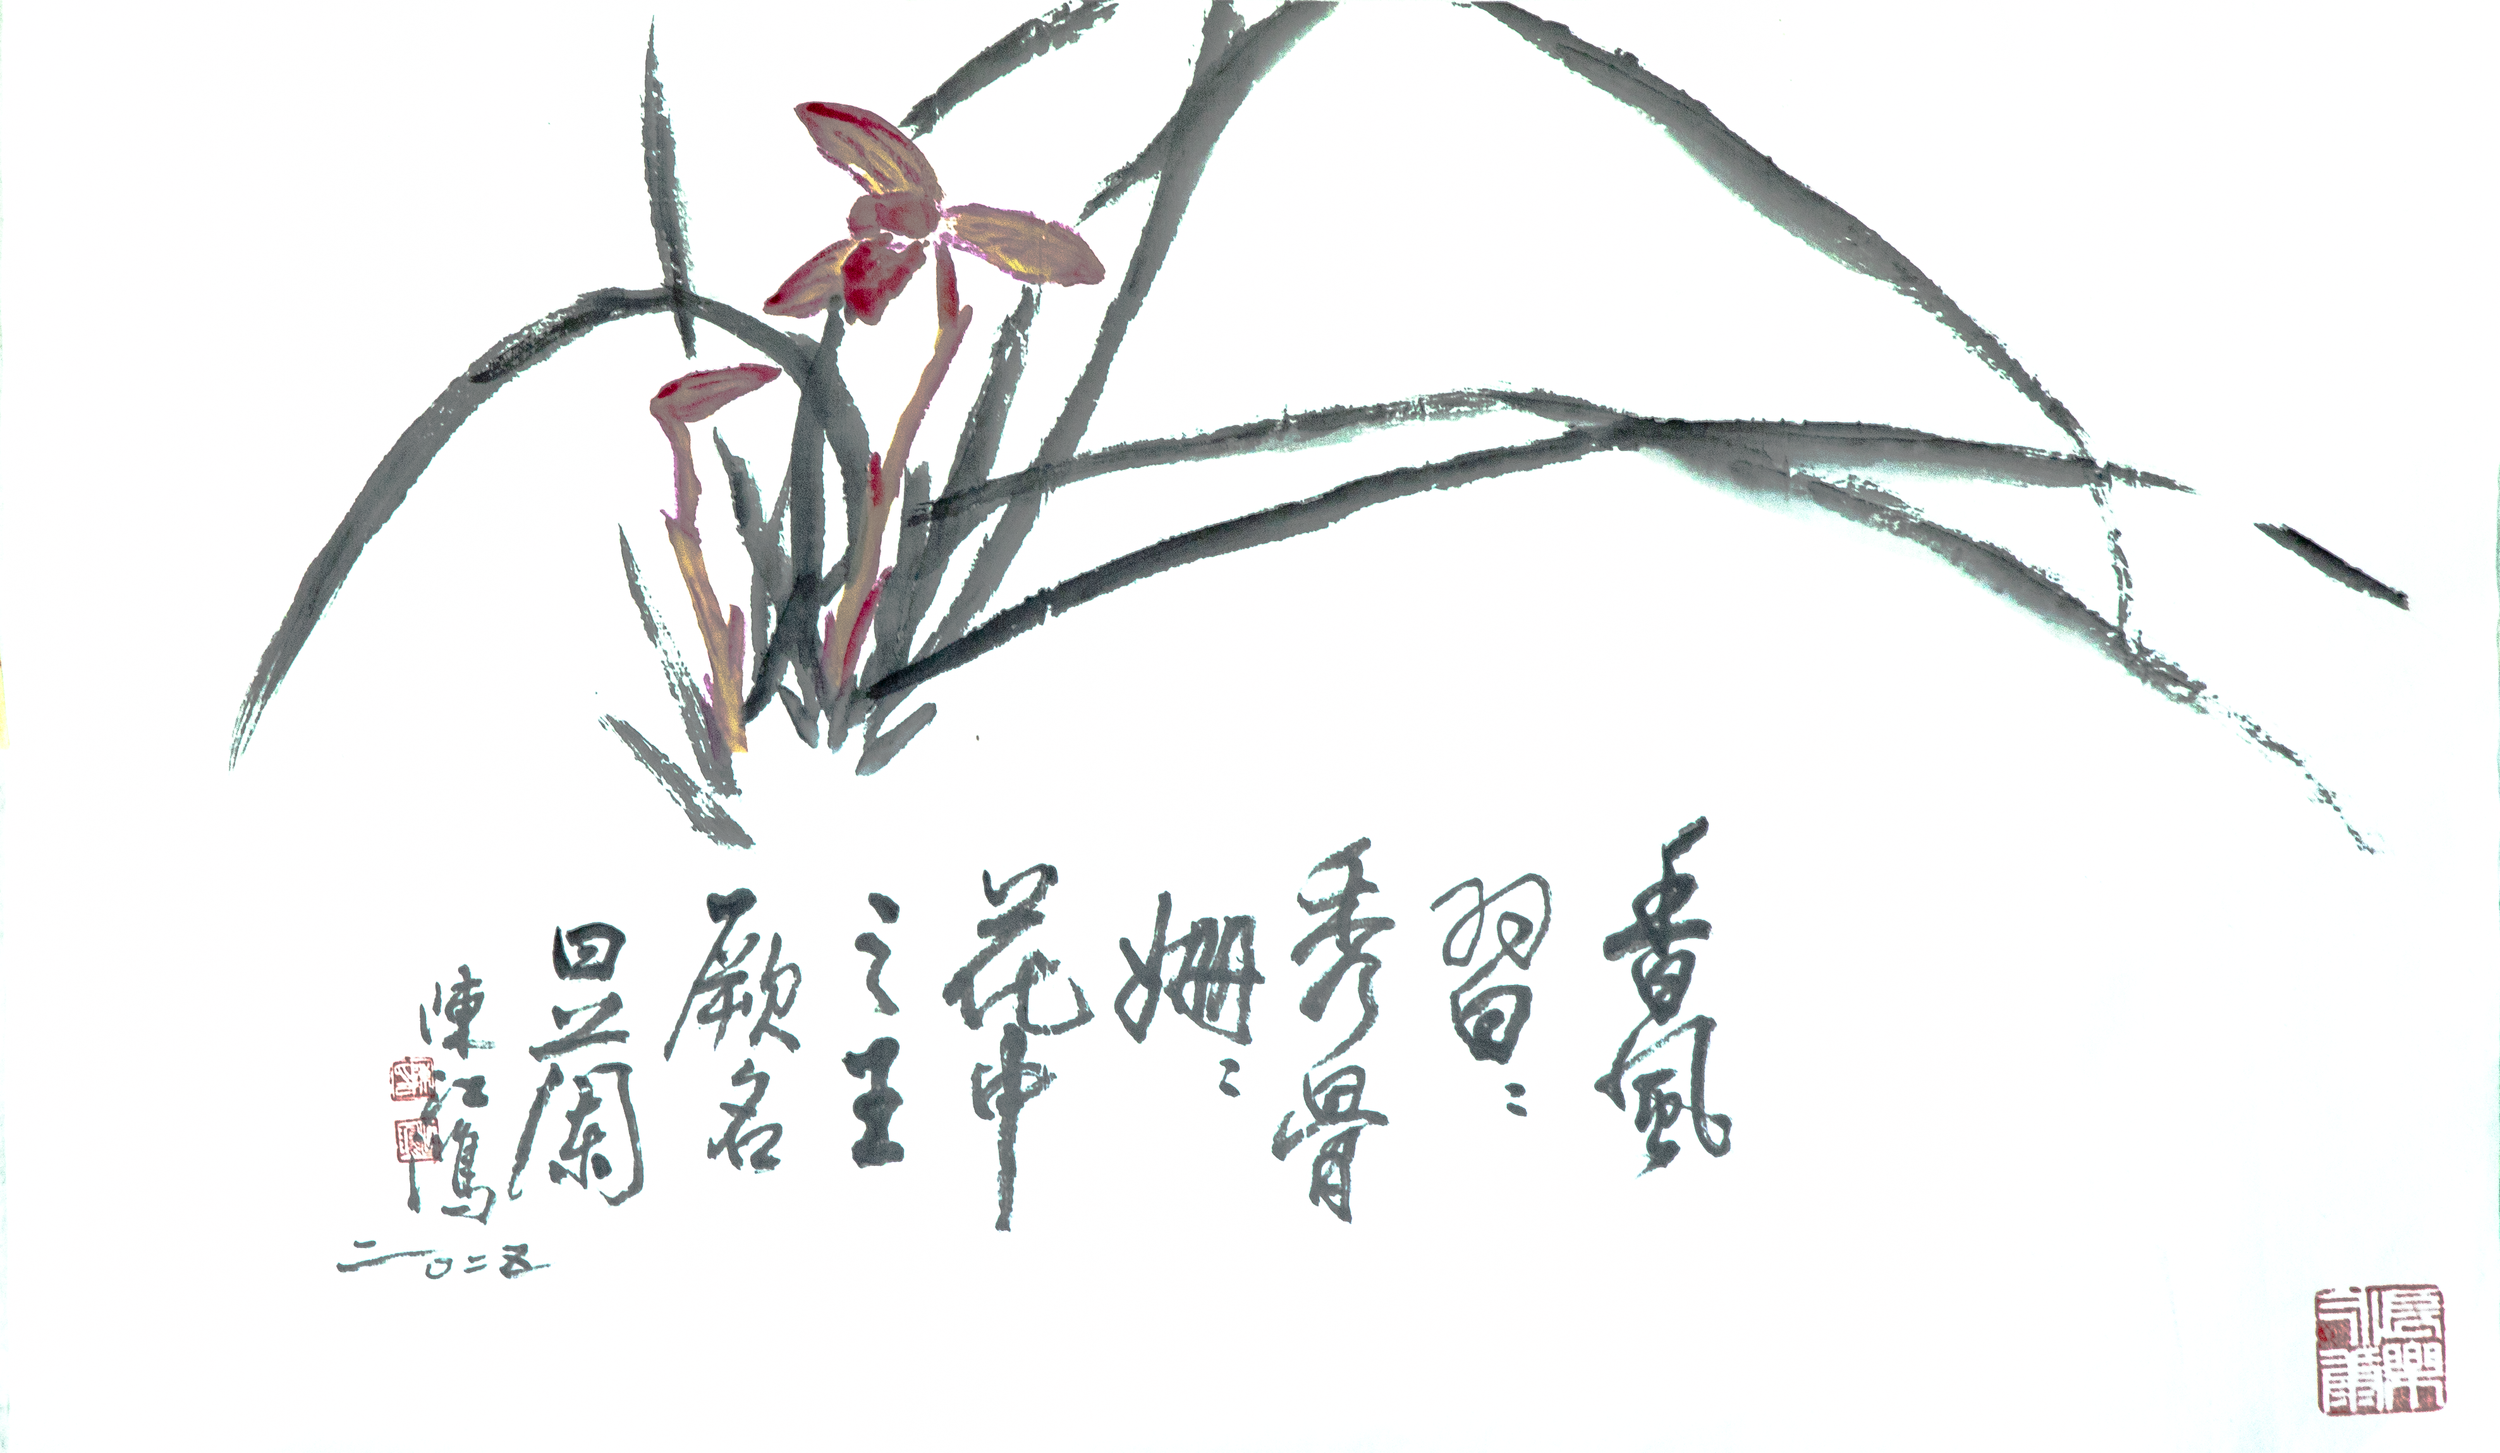 香風
習〻
秀骨
姍〻
花中
之王
厥名
曰蘭
陳江鴻
二〇二五